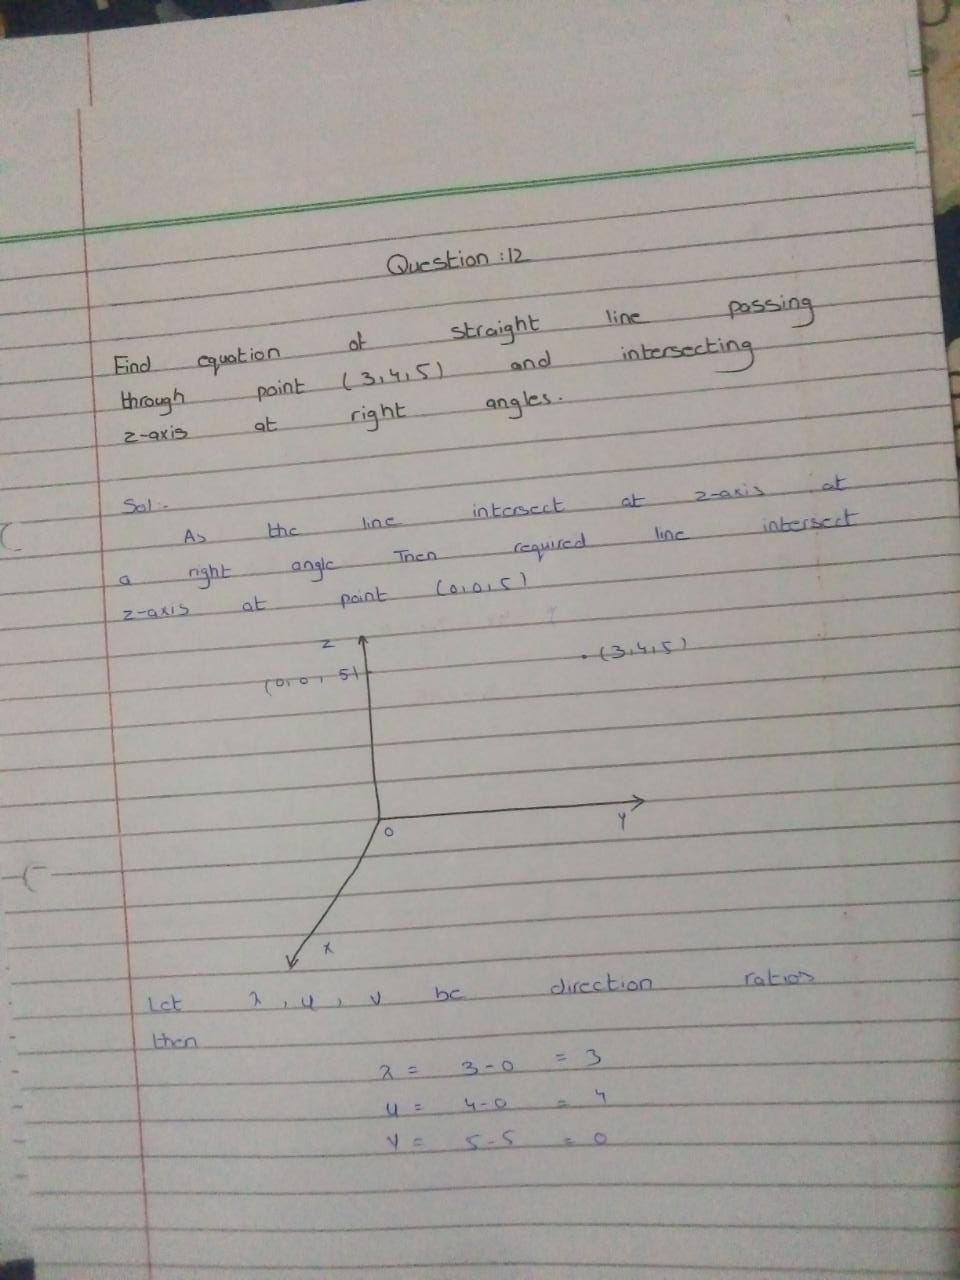 Question :12
Find equation of straight line passing
through point (3,4,5) and intersecting
z-axis at right angles.
Sol:-
As the line intersect at z-axis at
a right angle Then required line intersect
z-axis at point (0,0,5)
z
(0,0,5)
.(3,4,5)
O
y
x
Let λ, μ, ν be direction ratios
then
λ = 3-0 = 3
μ = 4-0 = 4
ν = 5-5 = 0